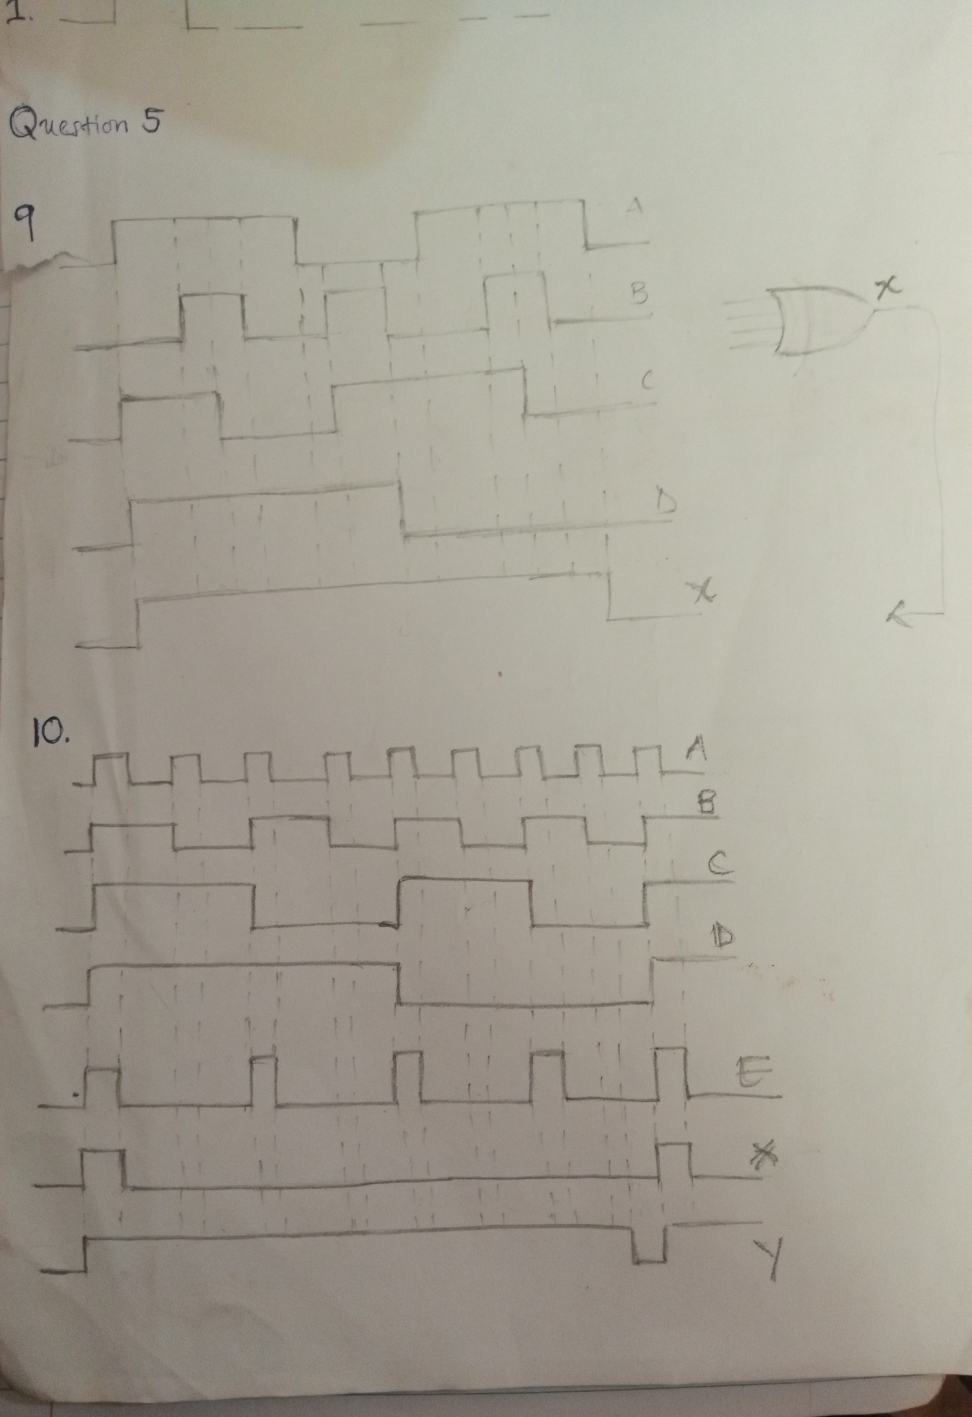 1.
Question 5
9
A
B
X
C
D
X
10.
A
B
C
D
E
X
Y